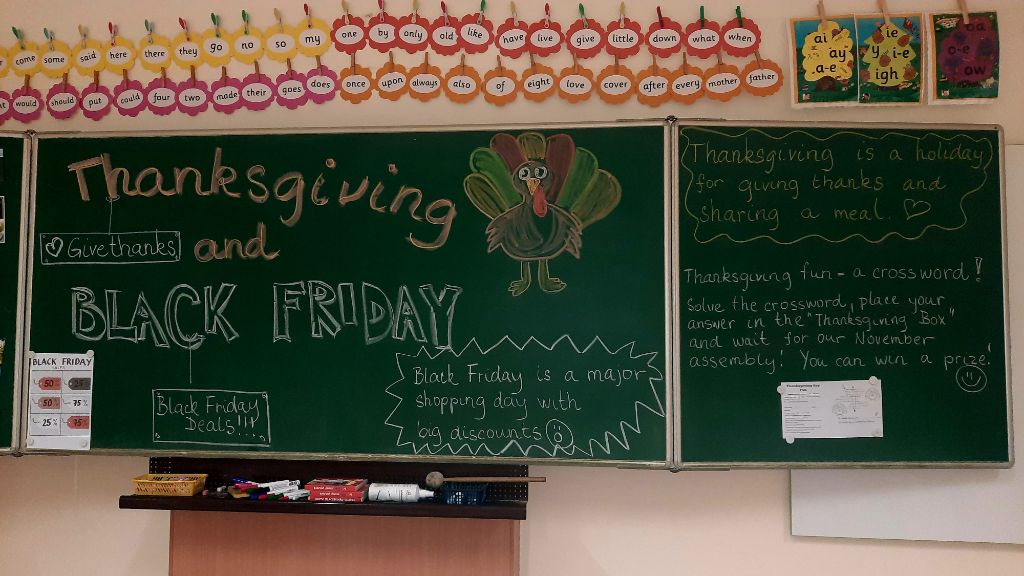 come some said here there they go no so my one by only old like have live give little down what when
would should put could four two made their goes does once upon always also of eight love cover after every mother father
ai
ay
a-e
ie
y i-e
igh
oa
o-e
ow
Thanksgiving
♡ Givethanks
and
BLACK FRIDAY
BLACK FRIDAY
SALES
50% 25%
50% 75%
25% 75%
Black Friday
Deals!!!
Black Friday is a major
shopping day with
big discounts
Thanksgiving is a holiday
for giving thanks and
sharing a meal. ♡
Thanksgiving fun - a crossword!
Solve the crossword, place your
answer in the "Thanksgiving Box"
and wait for our November
assembly! You can win a prize!